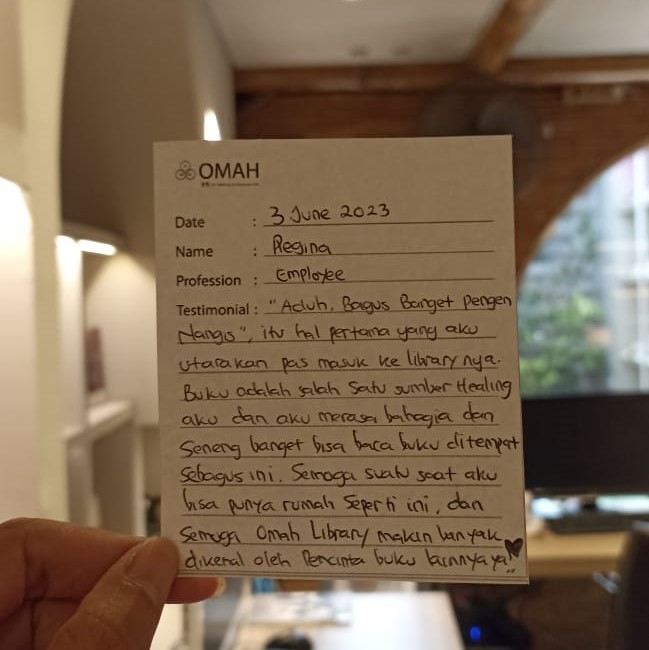 OMAH
Date : 3 June 2023
Name : Regina
Profession : Employee
Testimonial : "Aduh, Bagus Banget pengen
Nangis", itu hal pertama yang aku
utarakan pas masuk ke library nya.
Buku adalah salah satu sumber Healing
aku dan aku merasa bahagia dan
Seneng banget bisa baca buku ditempat
sebagus ini. Semoga suatu saat aku
bisa punya rumah seperti ini, dan
Semoga Omah Library makin banyak
dikenal oleh Pencinta buku lainnya ya!